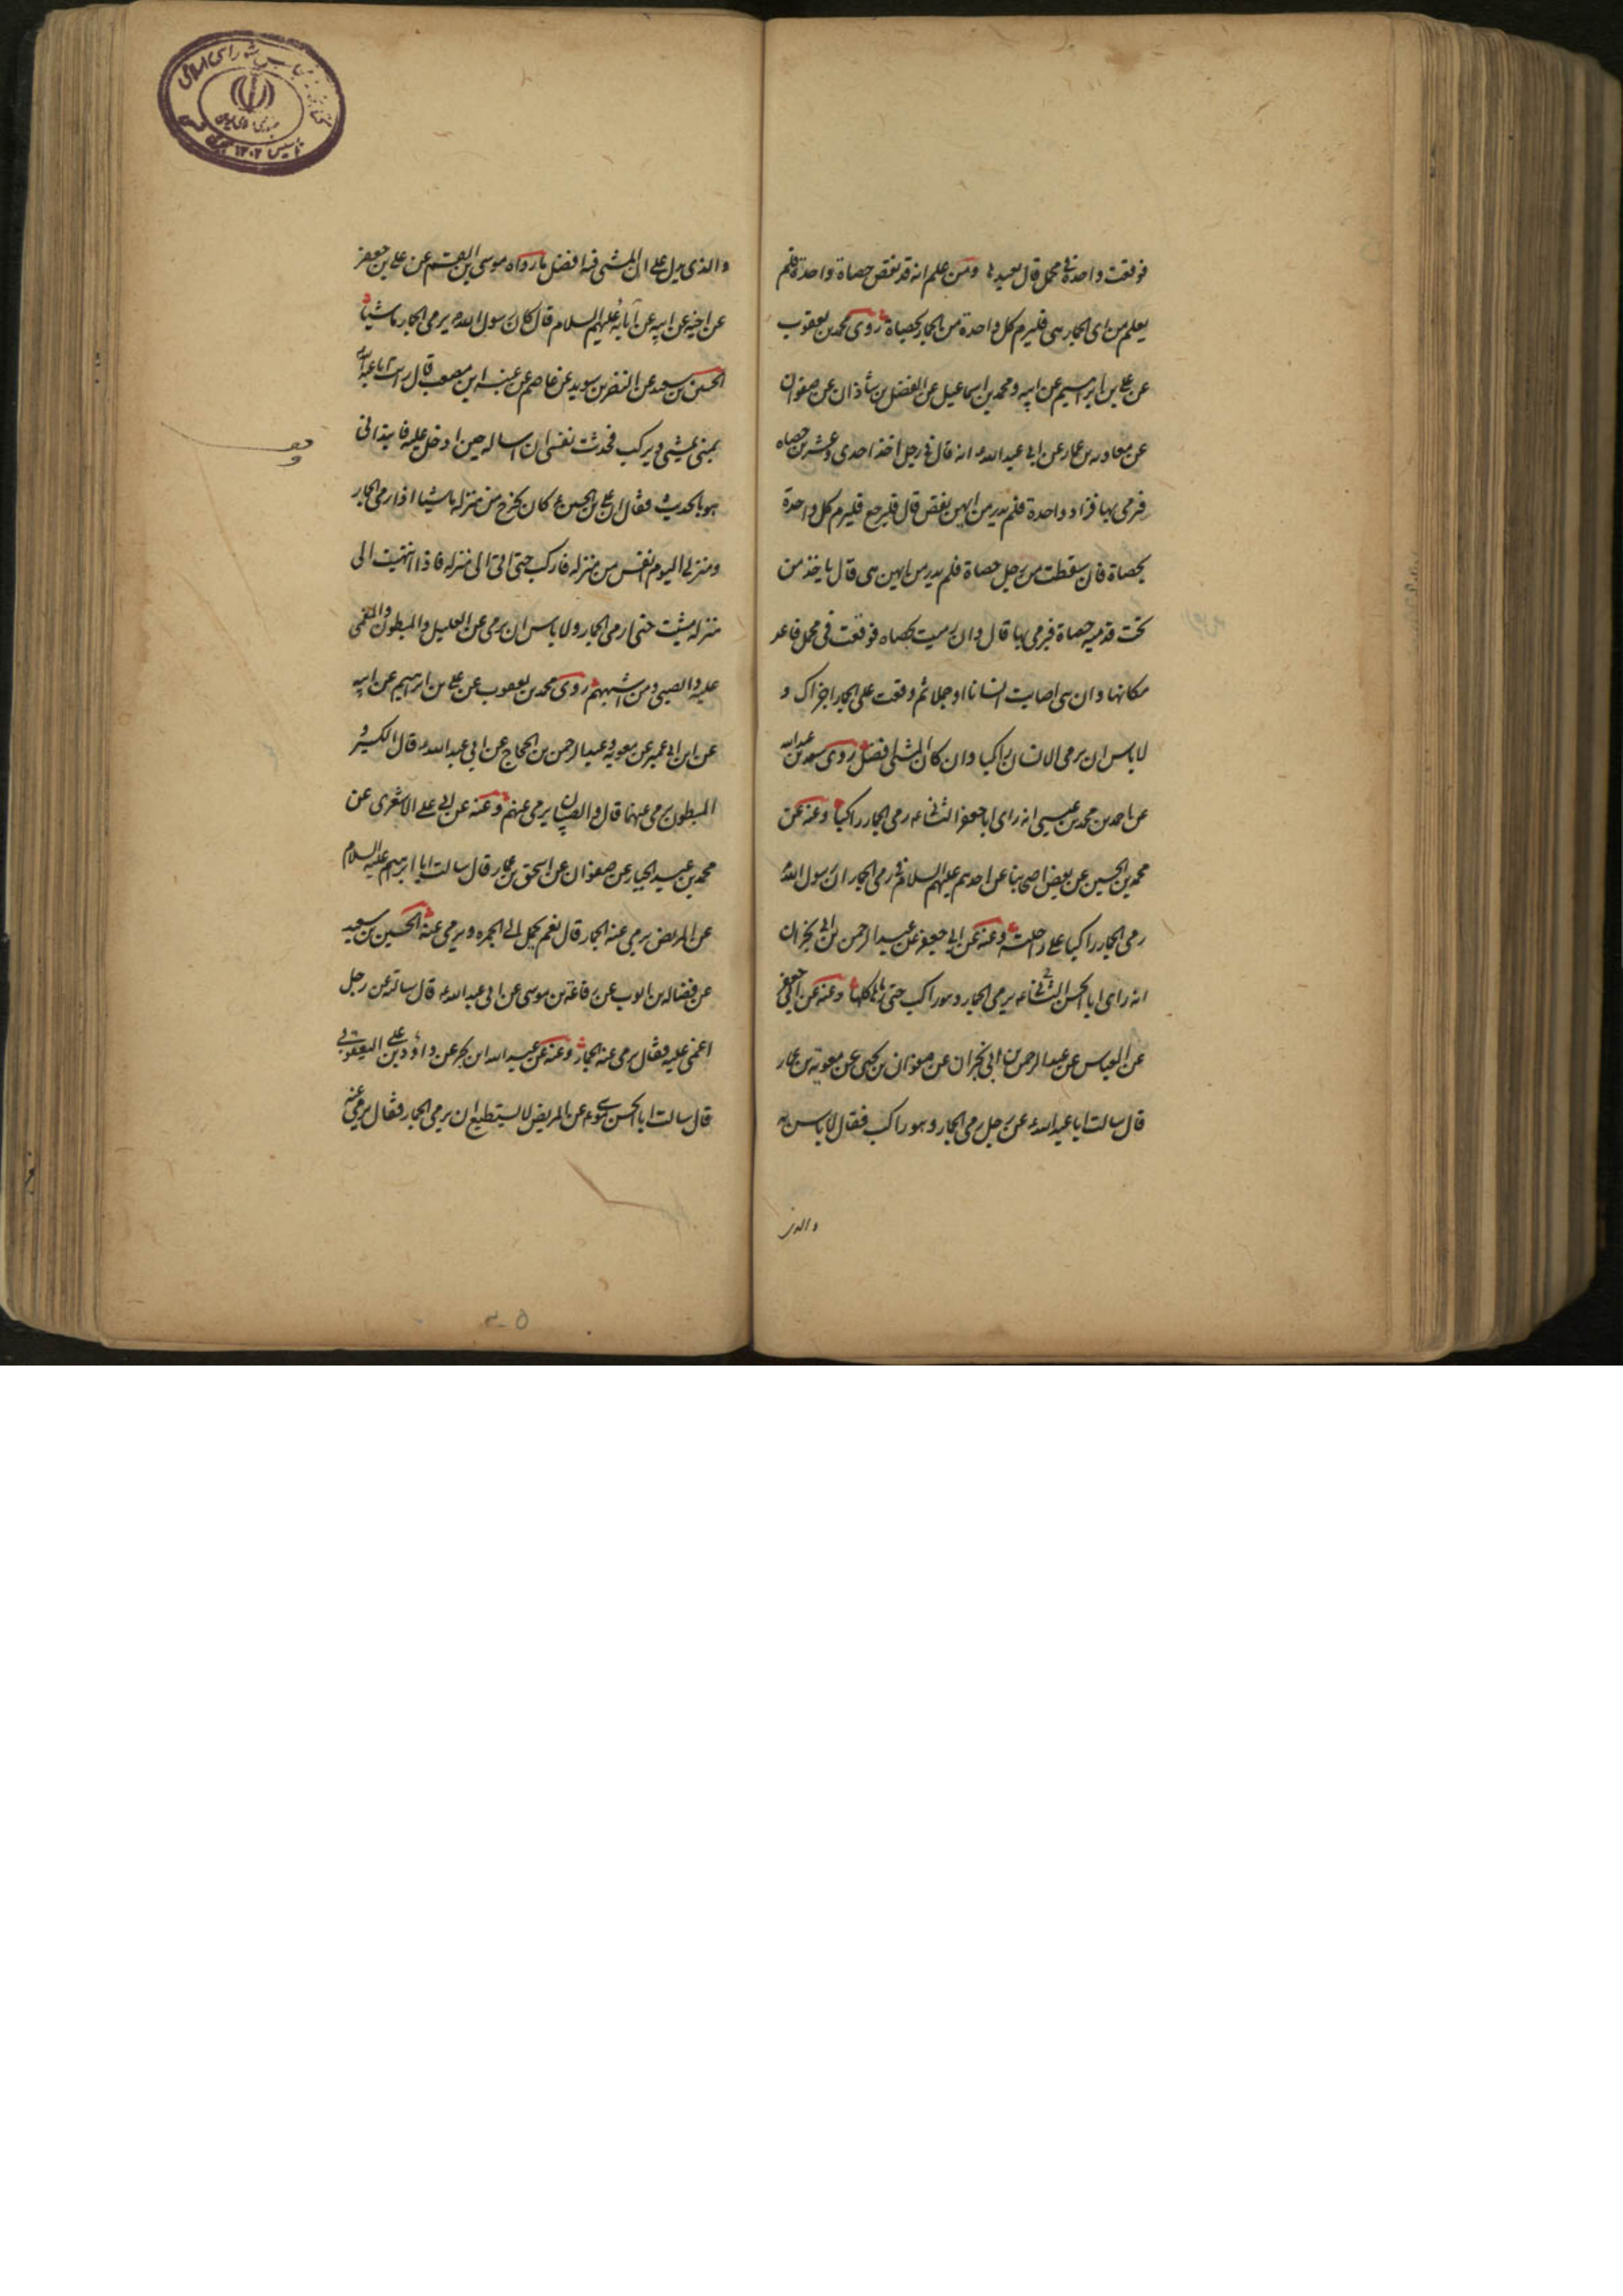 فوقعت واحدة في محمل قال يعيدها ومن علم انه قد نقص حصاة واحدة فلم
يعلم من اى الجمار هى فليرم كل واحدة من الجمار بحصاة روى محمد بن يعقوب
عن علي بن ابرهيم عن ابيه ومحمد بن اسماعيل عن الفضل بن شاذان عن صفوان
عن معاوية بن عمار عن ابي عبد الله ع انه قال في رجل اخذ احدى وعشرين حصاه
فرمى بها فزاد واحدة فلم يدر من ايهن نقص قال فليرجع فليرم كل واحدة
بحصاة فان سقطت من رجل حصاة فلم يدر من ايهن هى قال ياخذ من
تحت قدميه حصاة فيرمى بها قال وان رميت بحصاه فوقعت فى محمل فاعد
مكانها وان هى اصابت انسانا او جملا ثم وقعت على الجمار اجزاك و
لا باس ان يرمى الانسان راكبا وان كان المشى افضل روى سعد بن عبد الله
عن احمد بن محمد بن عيسى انه راى ابا جعفر الثانى ع رمى الجمار راكبا وعنه عن
محمد بن الحسين عن بعض اصحابنا عن احدهم عليهم السلام فى رمى الجمار ان رسول الله ص
رمى الجمار راكبا على راحلته وعنه عن ابي جعفر عن عبد الرحمن بن ابي نجران
انه راى ابا الحسن الثانى ع يرمى الجمار وهو راكب حتى رماها كلها وعنه عن ابي جعفر
عن العباس عن عبد الرحمن بن ابى نجران عن صفوان بن يحيى عن معوية بن عمار
قال سالت ابا عبد الله ع عن رجل رمى الجمار وهو راكب فقال لا باس به
والذى
والذى يدل على ان المشى فيه افضل ما رواه موسى بن القسم عن علي بن جعفر
عن اخيه عن ابيه عن آبائه عليهم السلام قال كان رسول الله ص يرمى الجمار ماشيا
الحسين بن سعيد عن النضر بن سويد عن عاصم عن عنبسه ابن مصعب قال رايت ابا عبد الله
بمنى يمشى ويركب فحدثت نفسى ان اساله حين ادخل عليه فابتدانى
هو بالحديث فقال ان علي بن الحسين ع كان يخرج من منزله ماشيا اذا رمى الجمار
ومنزلى اليوم انفس من منزله فاركب حتى اتى الى منزله فاذا انتهيت الى
منزله مشيت حتى ارمى الجمار ولا باس ان يرمى عن العليل والمبطون والمغمى
عليه والصبى ومن اشبههم روى محمد بن يعقوب عن علي بن ابرهيم عن ابيه
عن ابن ابى عمير عن معوية وعبد الرحمن بن الحجاج عن ابي عبد الله ع قال الكسير و
المبطون يرمى عنهما قال والصبيان يرمى عنهم وعنه عن ابي على الاشعرى عن
محمد بن عبد الجبار عن صفوان عن اسحق بن عمار قال سالت ابا ابرهيم عليه السلام
عن المريض يرمى عنه الجمار قال نعم يحمل الى الجمره ويرمى عنه الحسين بن سعيد
عن فضاله بن ايوب عن رفاعة بن موسى عن ابى عبد الله ع قال سالته عن رجل
اغمى عليه فقال يرمى عنه الجمار وعنه عن عبد الله ابن بحر عن داؤد بن على اليعقوبى
قال سالت ابا الحسن موسى ع عن المريض لا يستطيع ان يرمى الجمار فقال يرمى عنه